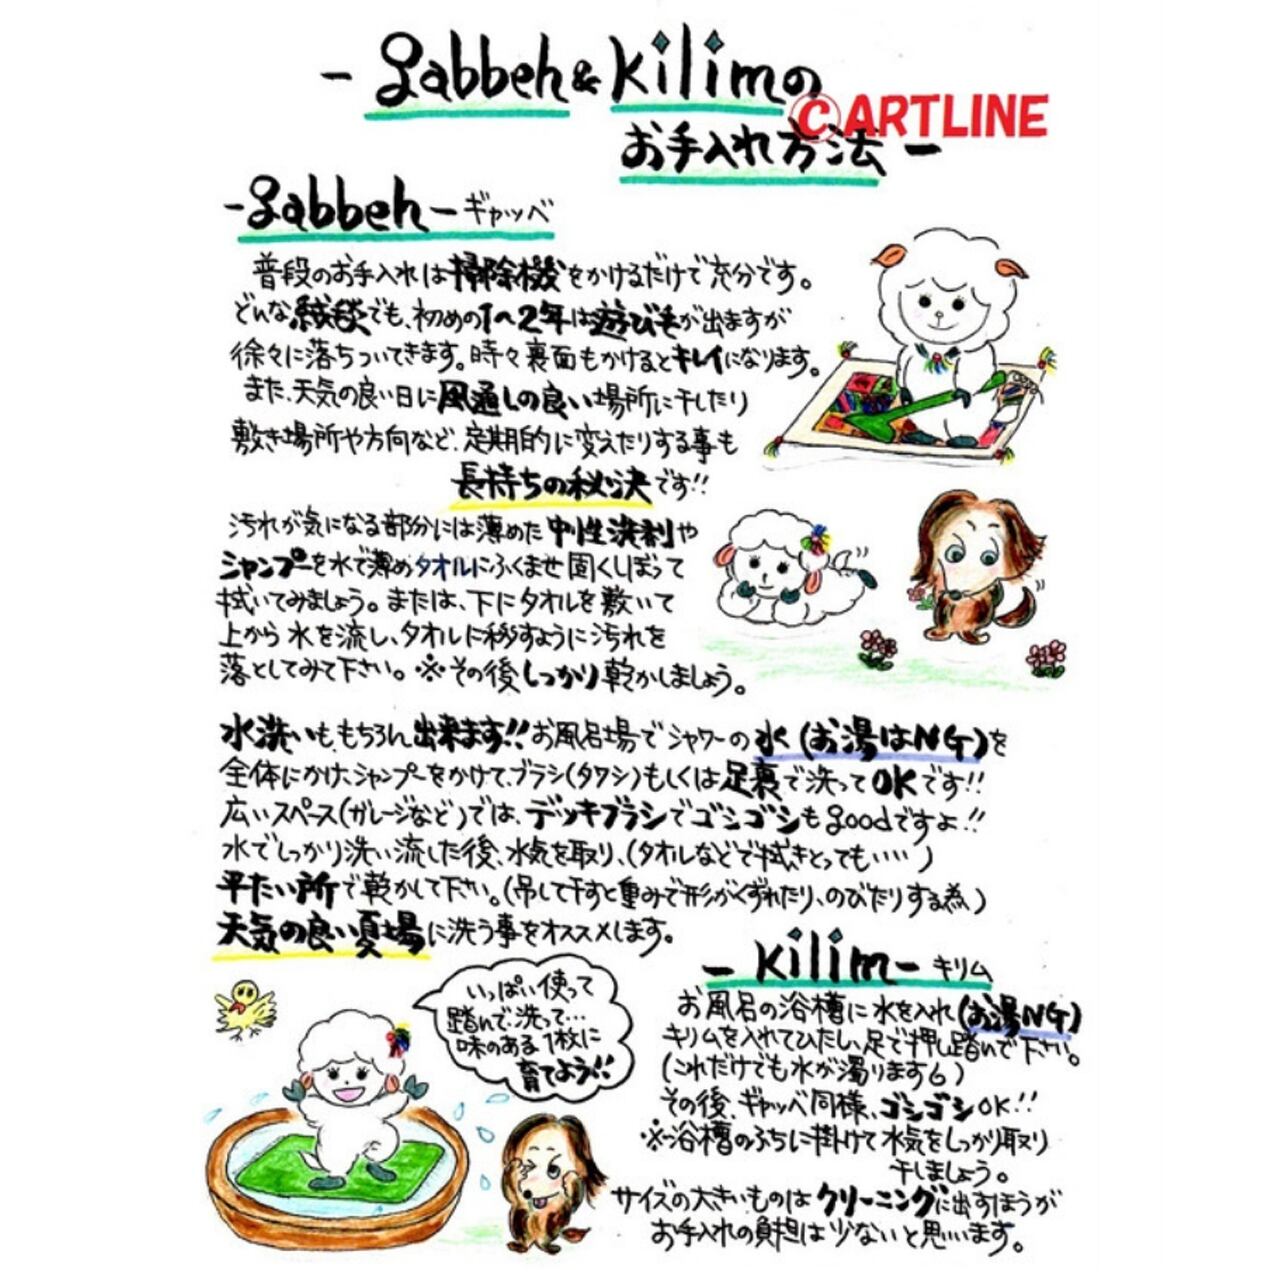 - gabbeh & kilimの
©ARTLINE
お手入れ方法 -
- gabbeh - ギャッベ
普段のお手入れは掃除機をかけるだけで充分です。
どんな絨毯でも、初めの1~2年は遊び毛が出ますが
徐々に落ちついてきます。時々裏面もかけるとキレイになります。
また、天気の良い日に風通しの良い場所に干したり
敷き場所や方向など、定期的に変えたりする事も
長持ちの秘決です!!
汚れが気になる部分には薄めた中性洗剤や
シャンプーを水で薄めタオルにふくませ固くしぼって
拭いてみましょう。または、下にタオルを敷いて
上から水を流し、タオルに移すように汚れを
落としてみて下さい。※その後しっかり乾かしましょう。
水洗いも、もちろん出来ます!!お風呂場でシャワーの水(お湯はNG)を
全体にかけ、シャンプーをかけて、ブラシ(タワシ)もしくは足裏で洗ってOKです!!
広いスペース(ガレージなど)では、デッキブラシでゴシゴシもgoodですよ!!
水でしっかり洗い流した後、水気を取り、(タオルなどで拭きとっても・・・・)
平たい所で乾かして下さい。(吊して干すと重みで形がくずれたり、のびたりする為)
天気の良い夏場に洗う事をオススメします。
- kilim - キリム
お風呂の浴槽に水を入れ(お湯NG)
キリムを入れてひたし、足で押し踏んで下さい。
(これだけでも水が濁りますよ)
その後、ギャッベ同様、ゴシゴシOK!!
※浴槽のふちに掛けて水気をしっかり取り
干しましょう。
サイズの大きいものはクリーニングに出すほうが
お手入れの負担は少ないと思います。
いっぱい使って
踏んで、洗って…
味のある1枚に
育てよう!!